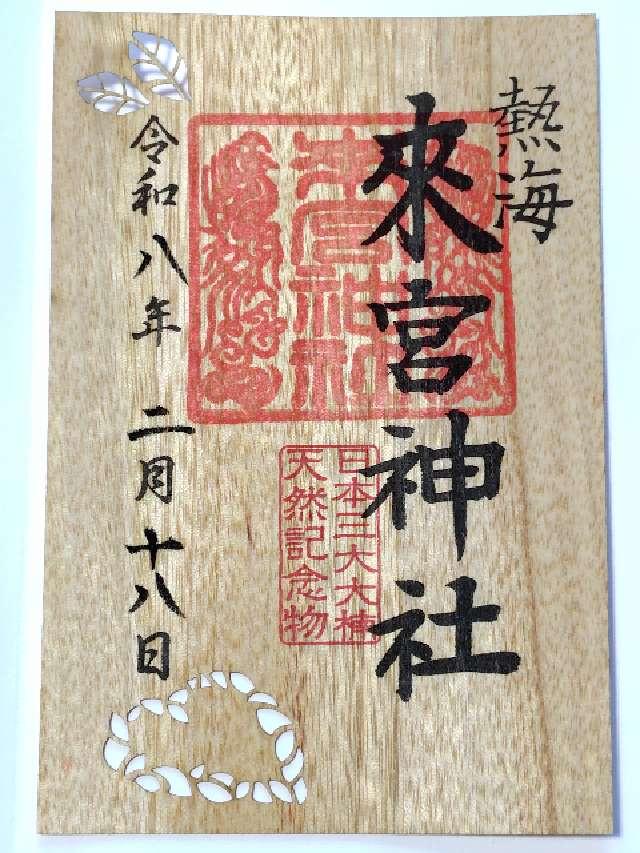 熱海
來宮神社
来宮神社
日本三大大楠
天然記念物
令和八年 二月十八日